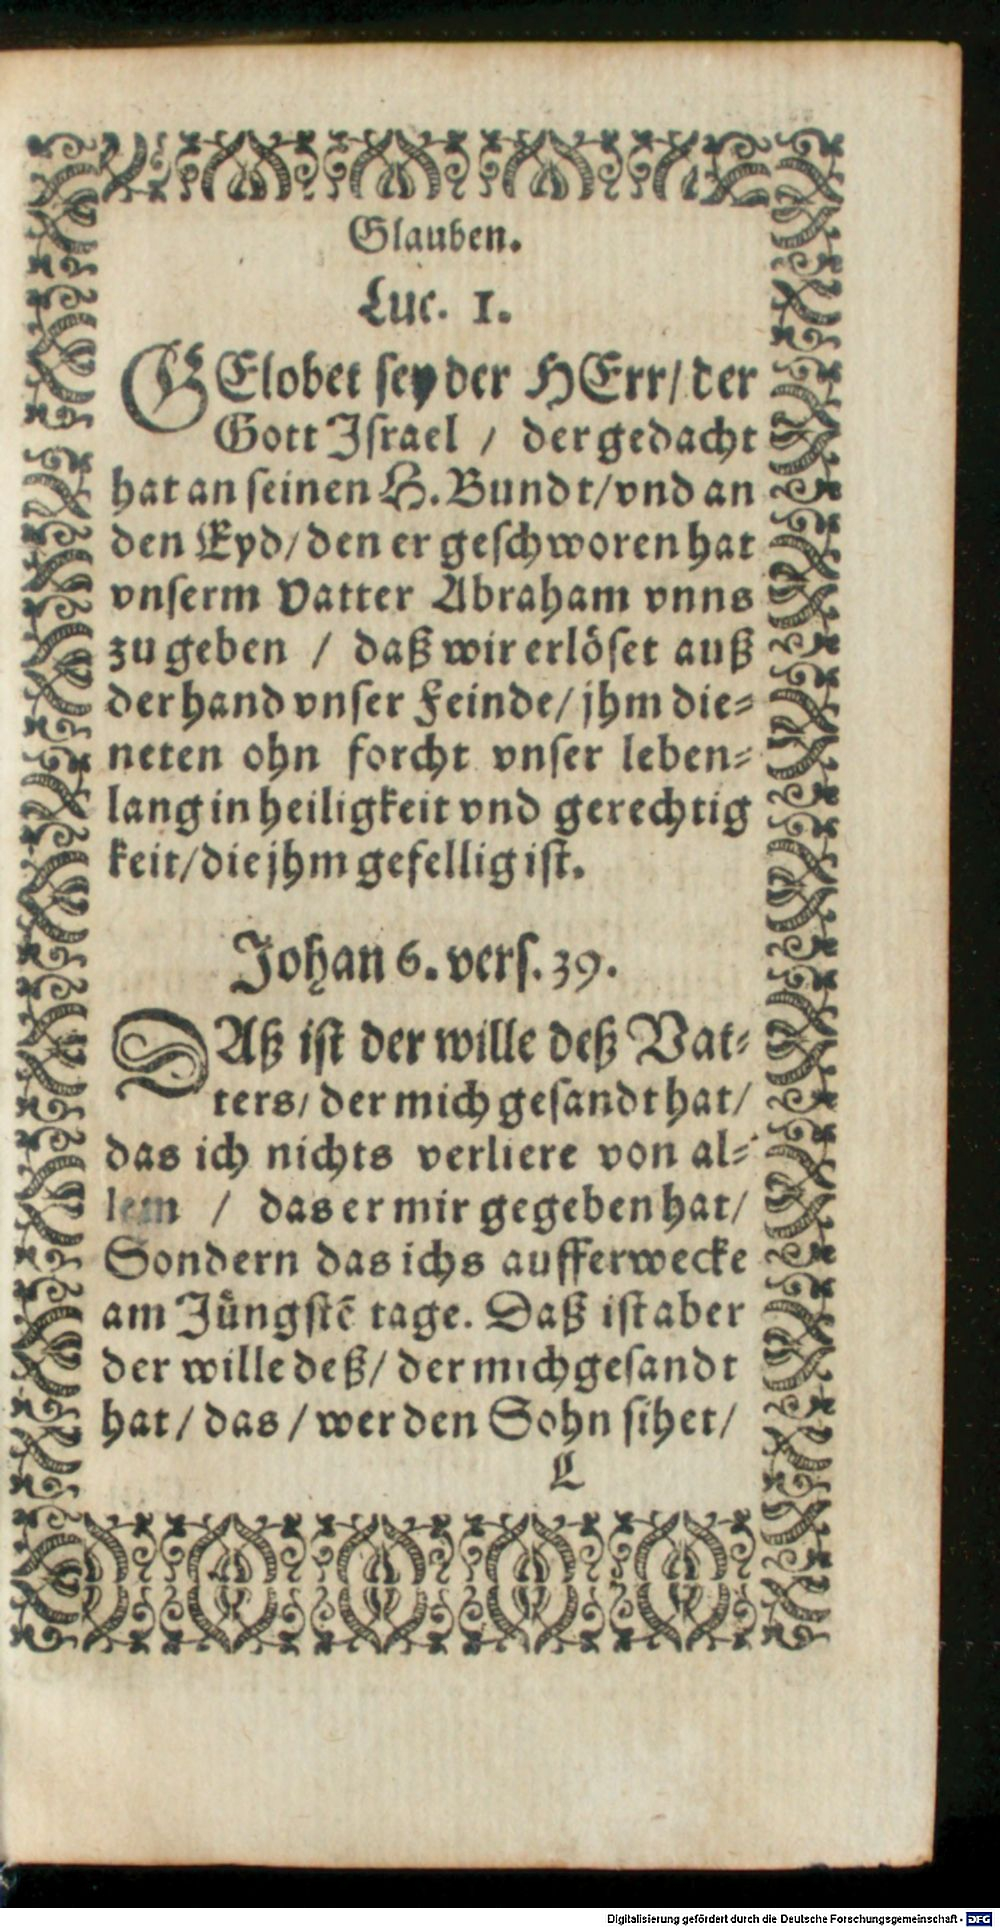 Glauben.
Luc. 1.
GElobet sey der HErr/ der
Gott Israel / der gedacht
hat an seinen H. Bundt/ vnd an
den Eyd/ den er geschworen hat
vnserm Vatter Abraham vnns
zu geben / daß wir erlöset auß
der hand vnser Feinde/ jhm die⸗
neten ohn forcht vnser leben⸗
lang in heiligkeit vnd gerechtig
keit/ die jhm gefellig ist.
Johan 6. vers. 39.
DAß ist der wille deß Vat⸗
ters/ der mich gesandt hat/
das ich nichts verliere von al⸗
lem / das er mir gegeben hat/
Sondern das ichs aufferwecke
am Jüngstē tage. Daß ist aber
der wille deß/ der mich gesandt
hat/ das / wer den Sohn sihet/
L
Digitalisierung gefördert durch die Deutsche Forschungsgemeinschaft - DFG